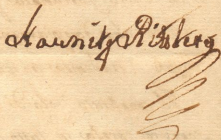 Kaunitz Ritberg